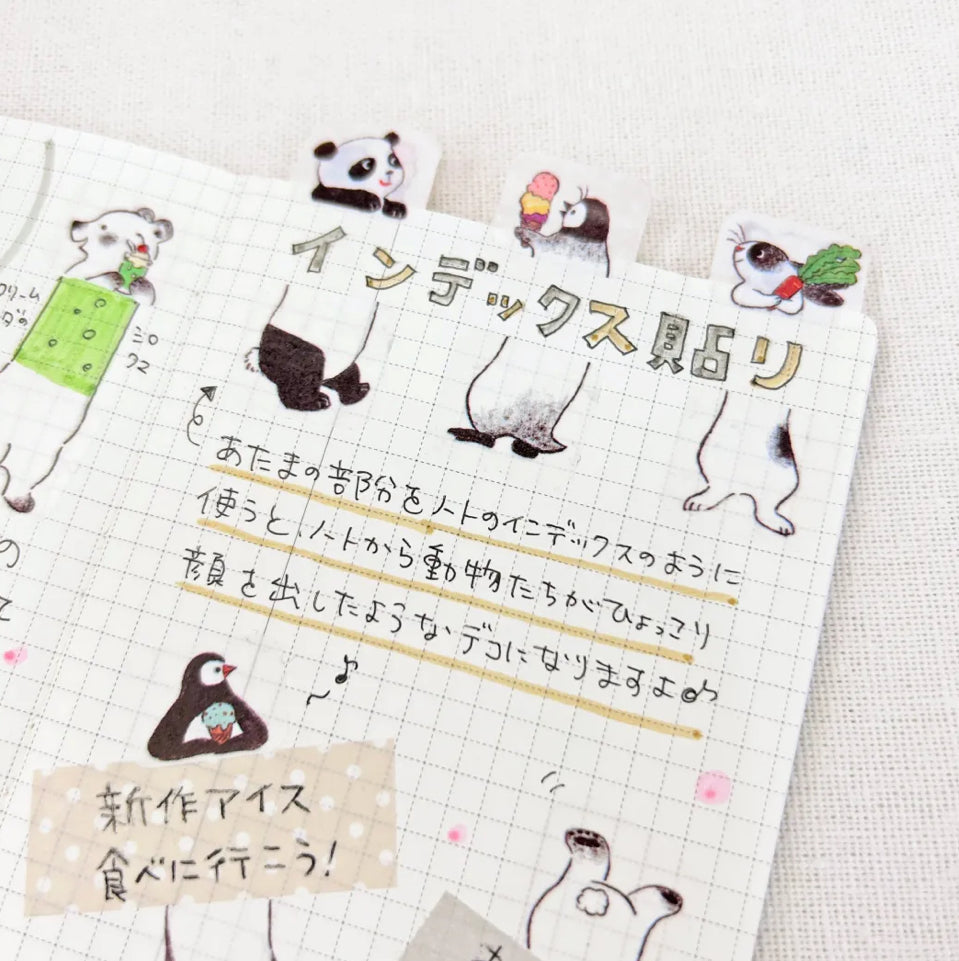 インデックス貼り
あたまの部分をノートのインデックスのように
使うと、ノートから動物たちがひょっこり
顔を出したようなデコになりますよ♪
新作アイス
食べに行こう!
の
て